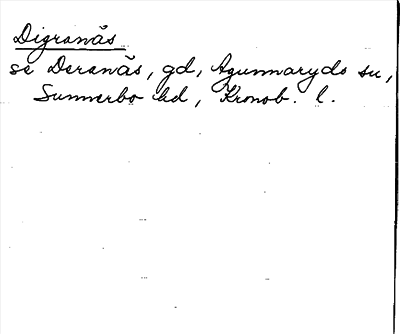 Digranäs
se Deranäs, gd, Agunnaryds sn,
Sunnerbo hd, Kronob. l.